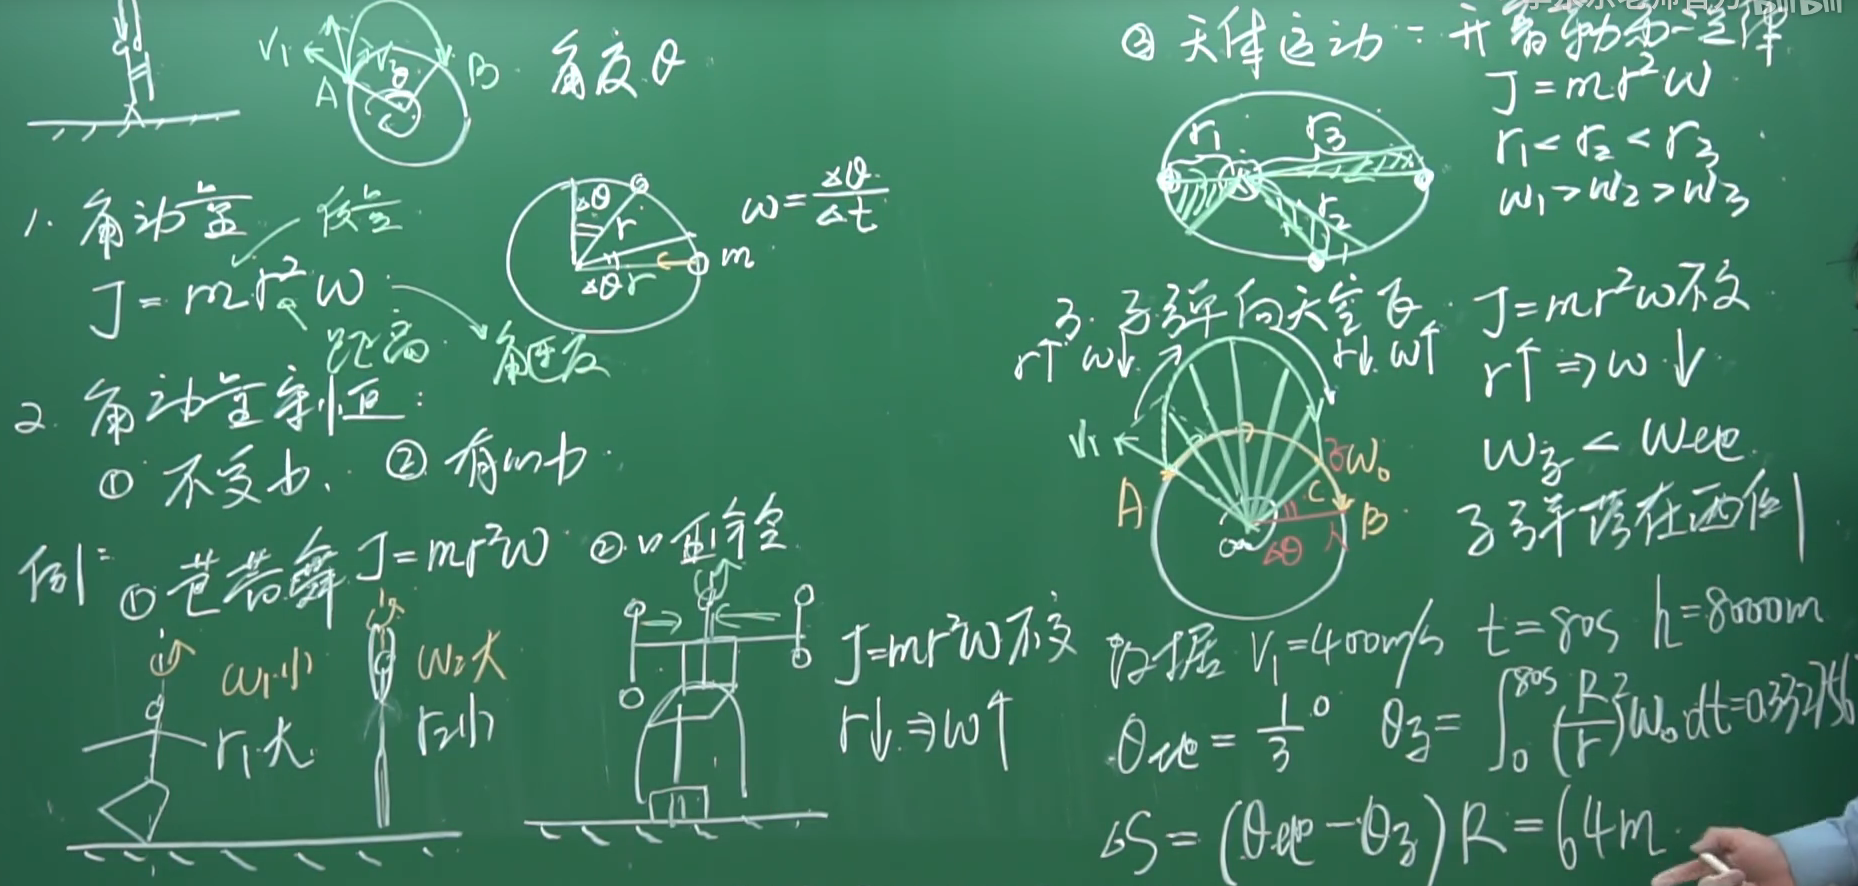 V₁
A
V₂
θ
B
角度θ
1. 角动量
质量
J = mr²ω
距离
角速度
Δθ
r
Δθ r
m
ω = Δθ/Δt
2. 角动量守恒:
① 不受力. ② 有心力
例: ① 芭蕾舞 J=mr²ω
ω₁小
r₁大
ω₂大
r₂小
②
J=mr²ω不变
r↓ ⇒ ω↑
③ 天体运动: 开普勒第二定律
r₁
r₃
r₂
J = mr²ω
r₁ < r₂ < r₃
ω₁ > ω₂ > ω₃
3. 子弹向天空飞
r↑ ω↓
r↓ ω↑
V₁
A
ω₀
C
B
Δθ
J = mr²ω不变
r↑ ⇒ ω↓
ω子 < ω地
子弹落在西侧
数据 V₁=400m/s t=80s h=8000m
θ地 = 1/3° θ子 = ∫₀^80s (R/r)²ω₀dt=0.33275
ΔS = (θ地 - θ子)R = 64m